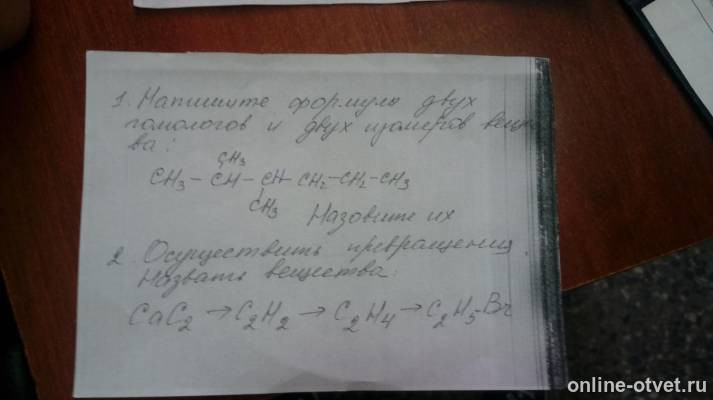 1. Напишите формулы двух
гомологов и двух изомеров вещ
ва:
CH3
CH3 - CH - CH - CH2 - CH2 - CH3
CH3
Назовите их
2 Осуществить превращения.
Назвать вещества:
CaC2 → C2H2 → C2H4 → C2H5Br
online-otvet.ru